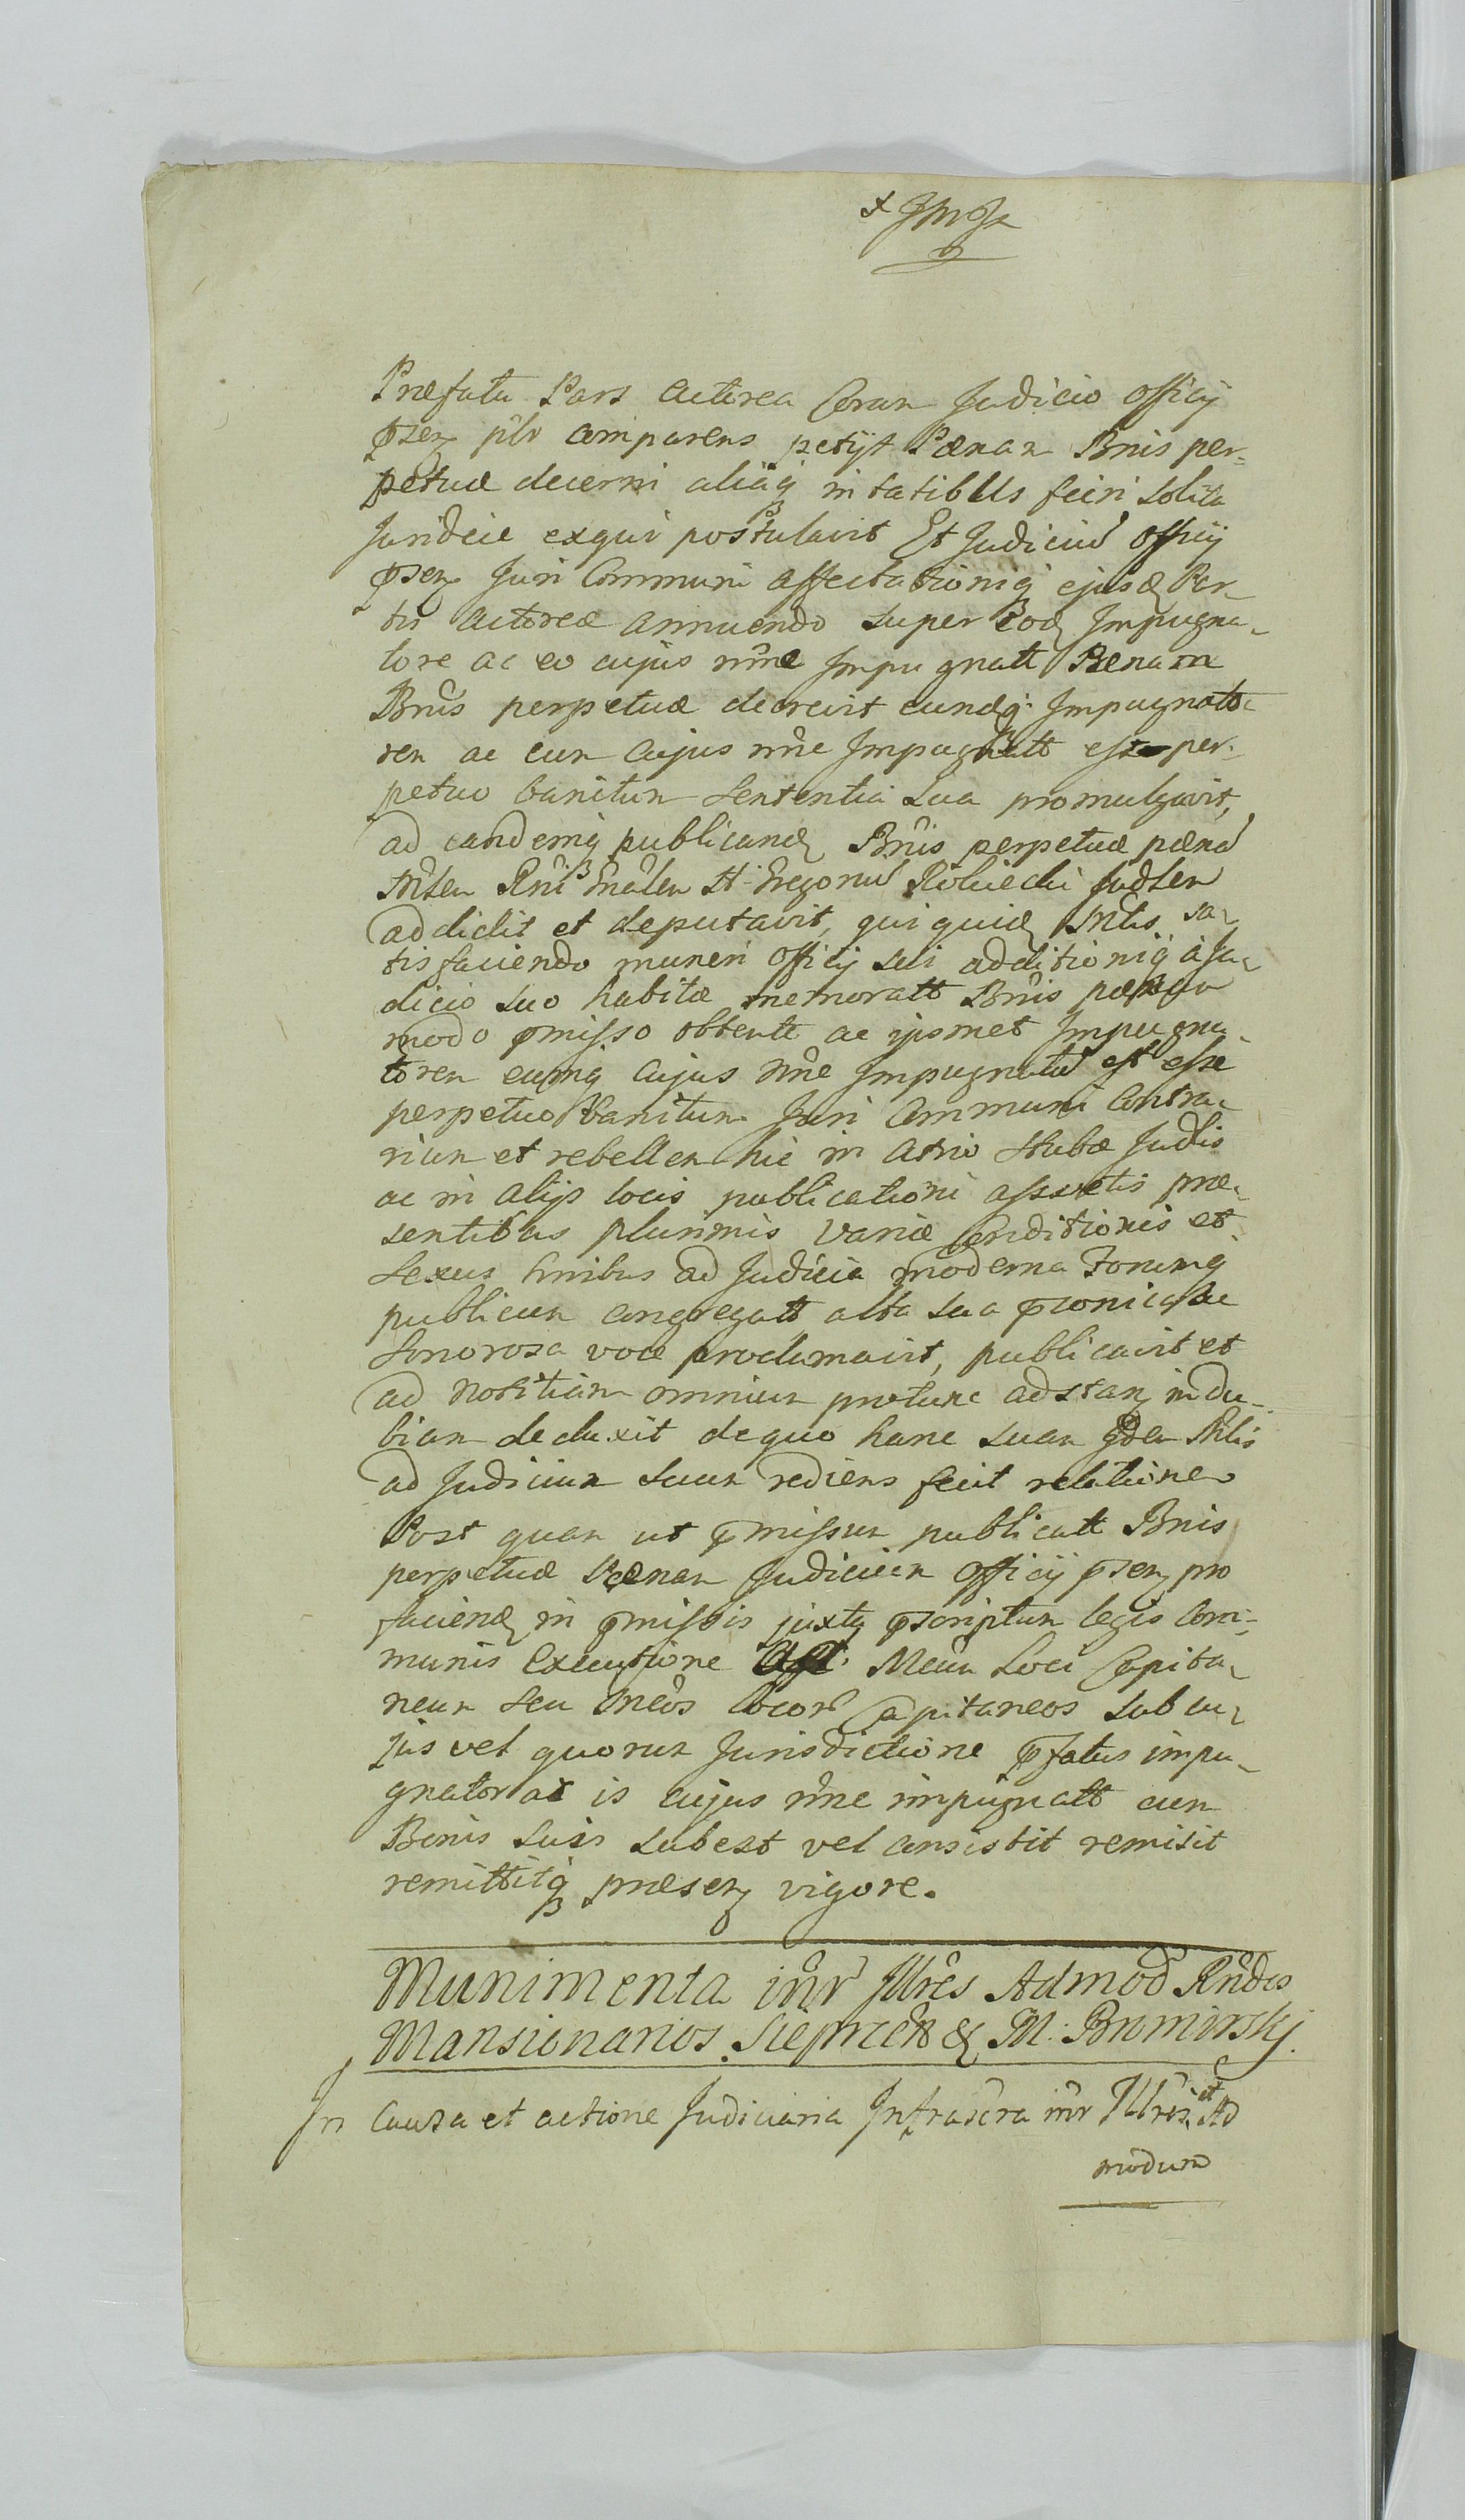 Præfata Pars actorea Coram Judicio officÿ
pñtr comparens petÿt Pœnam Bnis per=
petuæ decerni aliaqꝫ in talibus fieri solita
Juridice exequi postulavit Et Judiciũ Officÿ
Juri Communi affectationiqꝫ ejusd Par-
tis actoreæ annuendo super eod Impugna-
tore ac eo cujus nñe Impugnatt Pœnam
Bnis perpetuæ decrevit eundqꝫ Impugnato-
rem ac eum cujus nñe Impugnatt esse per-
petuo banitum Sententia sua promulgavit,
ad eandemqꝫ publicand Bnis perpetuæ pœnã
addidit et deputavit, qui quid Mlis sa-
tisfaciendo muneri Officÿ sui additioniqꝫ a Ju-
dicio suo habitæ memoratt Bnis pœnam
modo pmisso obtentt ac ipsmet Impugna-
torem eumqꝫ cujus nñe Impugnatũ est esse
perpetuo Banitum Juri Communi Contra-
rium et rebellem hic in atrio Stubæ Judlis
ac in alÿs locis publicationi assvetis præ-
sentibus plurimis variæ Conditionis et
Sexus hnibus ad Judicia moderna Forumqꝫ
publicum congregatt alta sua
Sonorosa voce proclamavit, publicavit et
ad notitiam omnium protunc adstan indu-
biam deduxit de quo hanc suam idem Mlis
ad Judicium suum rediens fecit relationem
Post quam ut pmissum publicatt Bnis
perpetuæ Pœnam Judicium Officÿ psen pro
faciend in pmissis juxta pscriptum legis Com-
munis Executione Mcum Loci Capita-
neum seu Mcos locorũ Capitaneos sub cu-
jus vel quorum Jurisdictione pfatus impu-
gnator ac is cujus nñe impugnatt cum
Bonis suis subest vel consistit remisit
remittitqꝫ præsen vigore.
Munimenta inr Illres Admod Rndos
Mansionarios Sieprcen & M: Bromirskj.
In Causa et actione Judiciaria Infrascra inr Illres et Ad
modum